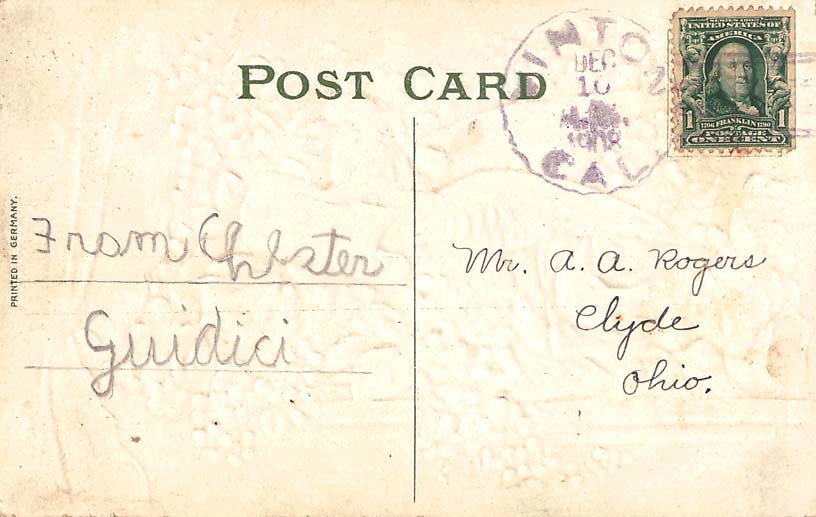 POST CARD
DEC
10
1908
CAL.
SERIES 1902
UNITED STATES OF
AMERICA
1706 FRANKLIN 1790
1 POSTAGE 1
ONE CENT
PRINTED IN GERMANY.
Fram Chester
Guidici
Mr. A. A. Rogers
Clyde
Ohio.